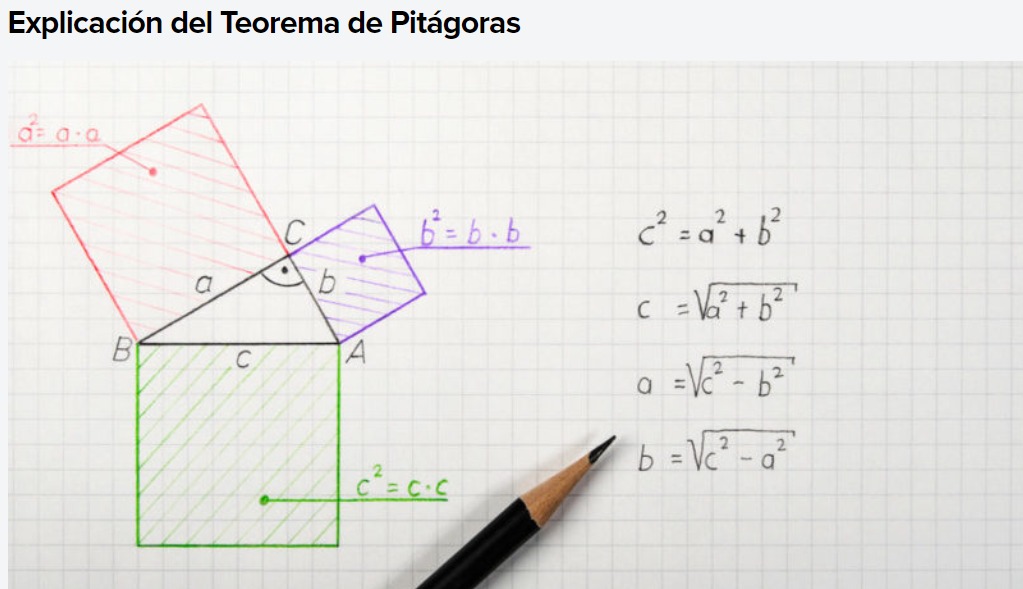 Explicación del Teorema de Pitágoras
a² = a · a
C
b² = b · b
a
b
B
c
A
c² = c · c
c² = a² + b²
c = √a² + b²
a = √c² - b²
b = √c² - a²